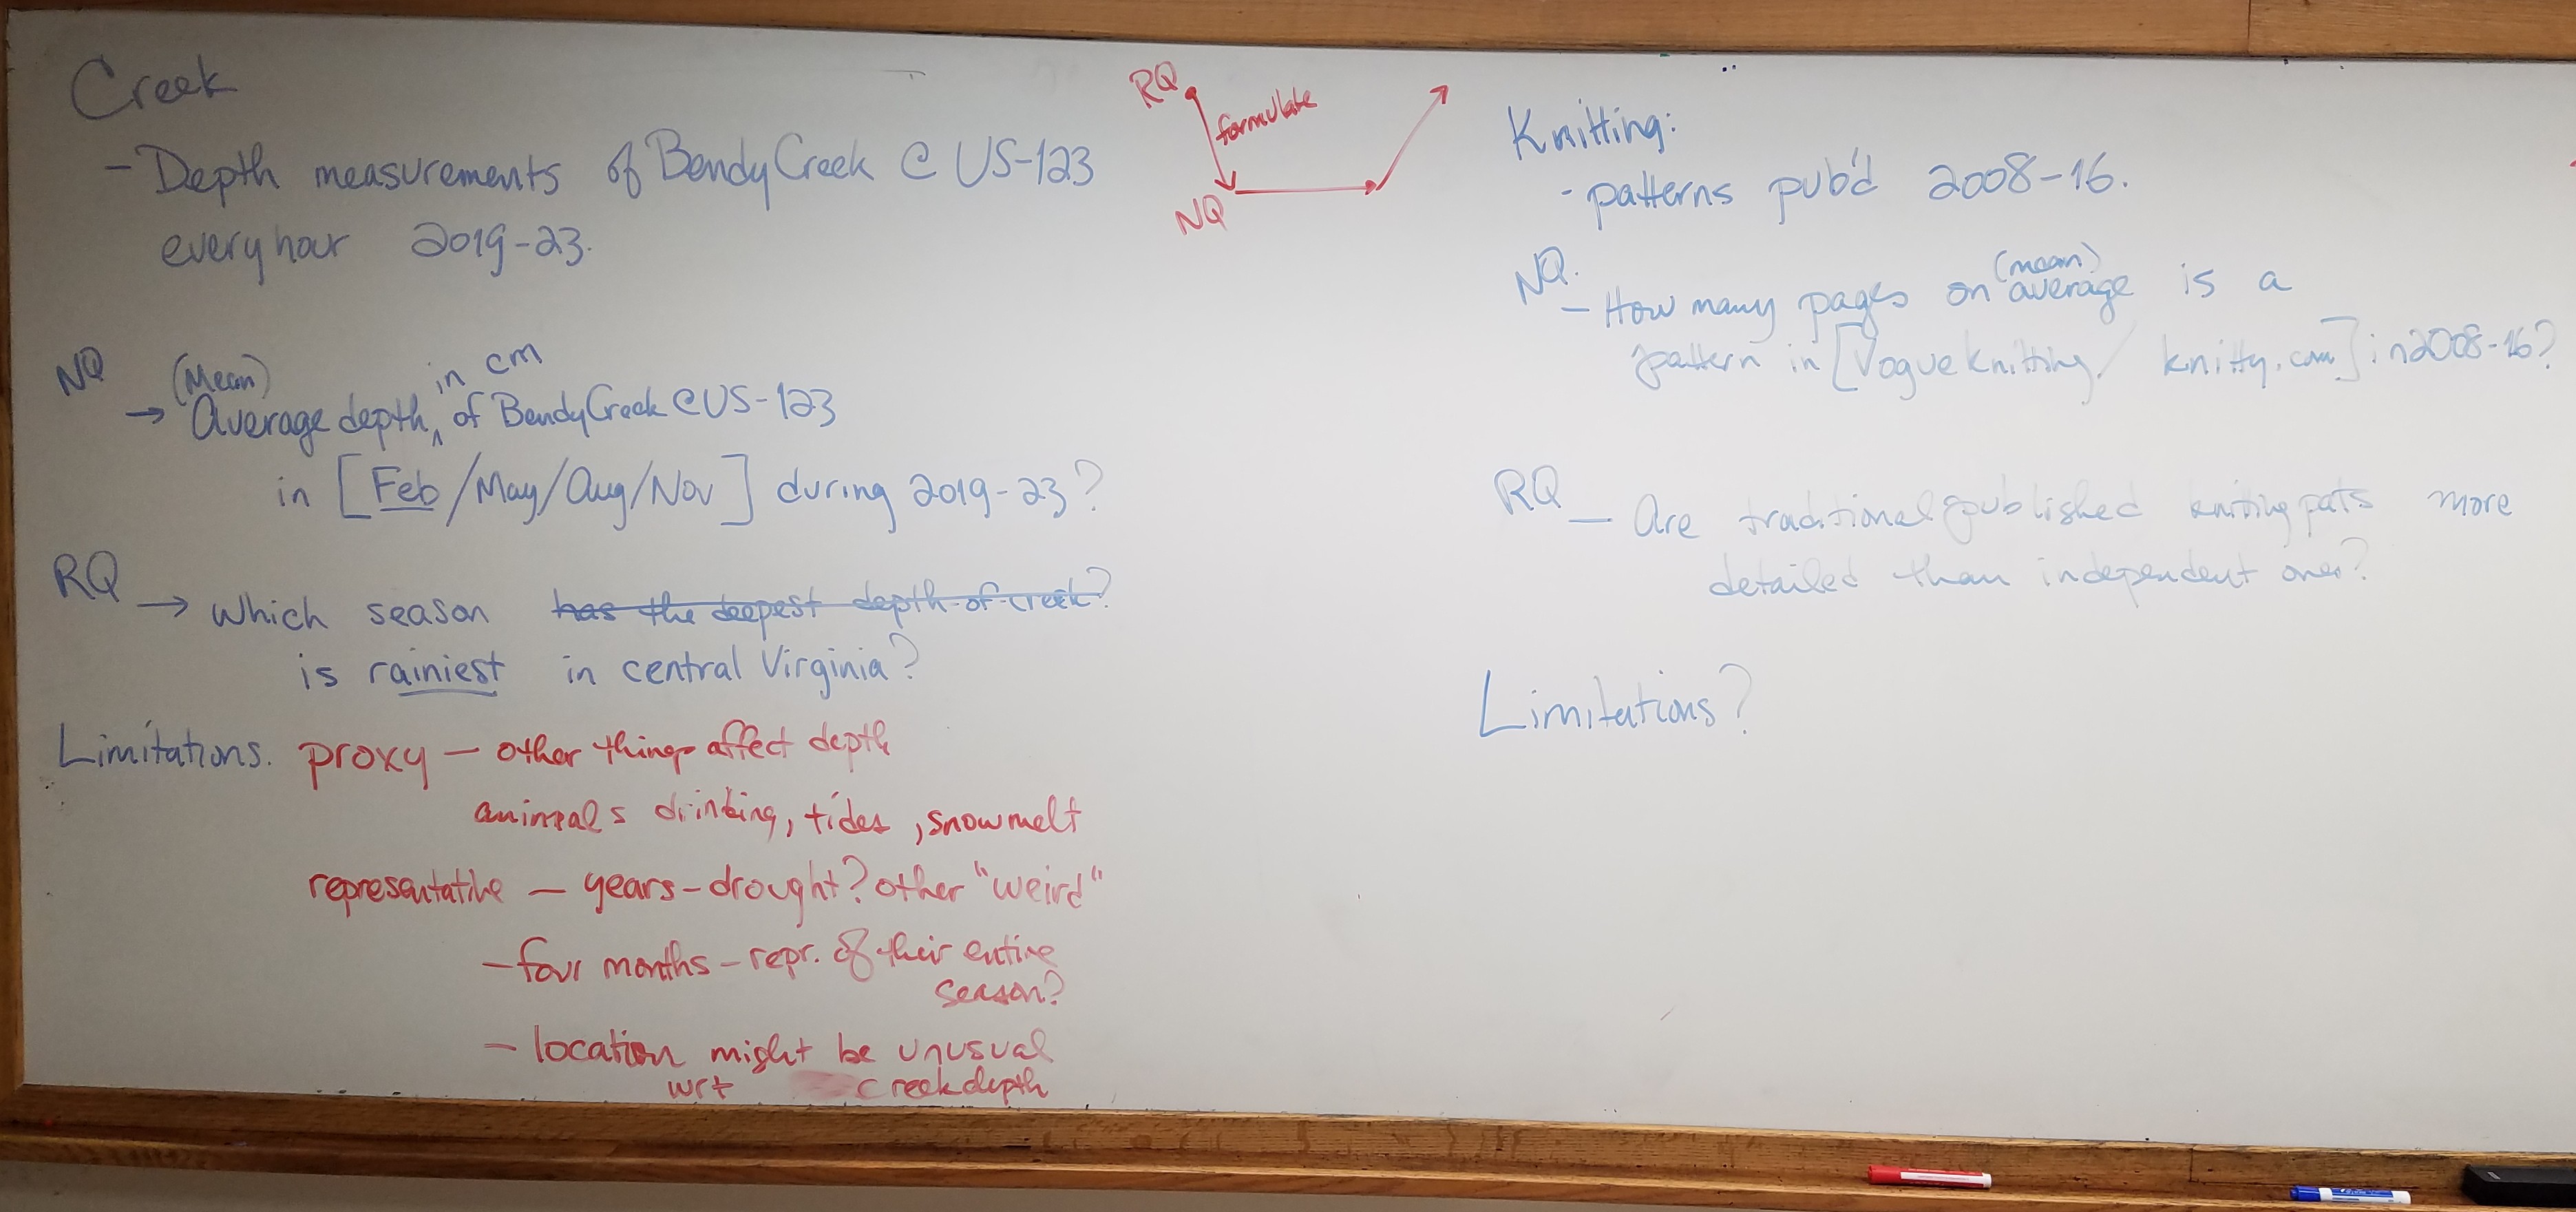 Creek
- Depth measurements of Bendy Creek @ US-123
every hour 2019-23.
NQ (Mean) in cm
→ Average depth ^ of Bendy Creek @ US-123
in [Feb/May/Aug/Nov] during 2019-23?
RQ → Which season has the deepest depth of creek?
is rainiest in central Virginia?
Limitations. proxy — other things affect depth
animals drinking, tides, snowmelt
representative — years - drought? other "weird"
- four months - repr. of their entire
season?
- location might be unusual
wrt creek depth
RQ
formulate
NQ
Knitting:
- patterns pub'd 2008-16.
NQ. (mean)
- How many pages on average is a
pattern in [Vogue Knitting / knitty.com] in 2008-16?
RQ — Are traditional published knitting pats more
detailed than independent ones?
Limitations?